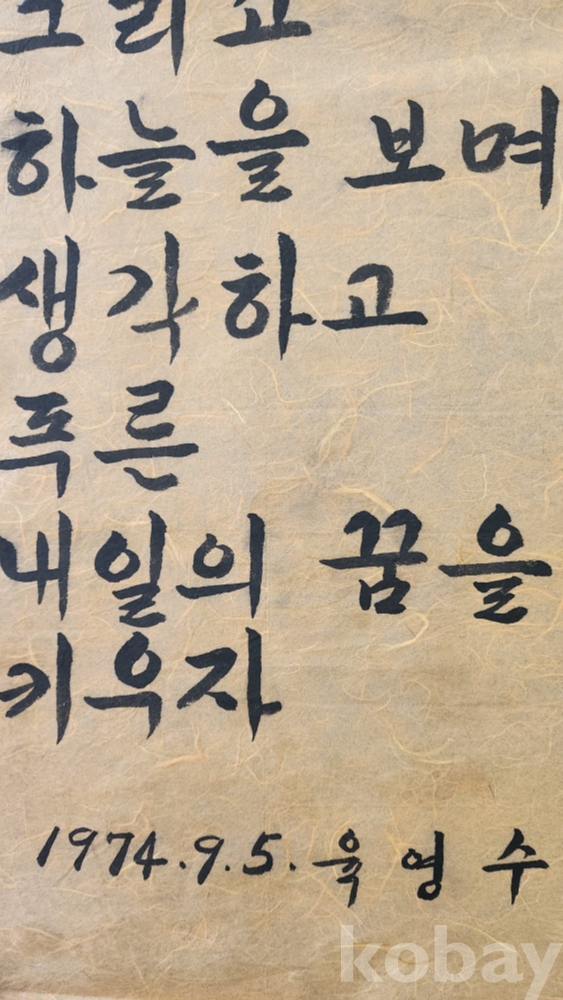 그리고
하늘을 보며
생각하고
푸른
내일의 꿈을
키우자
1974.9.5. 육영수
kobay